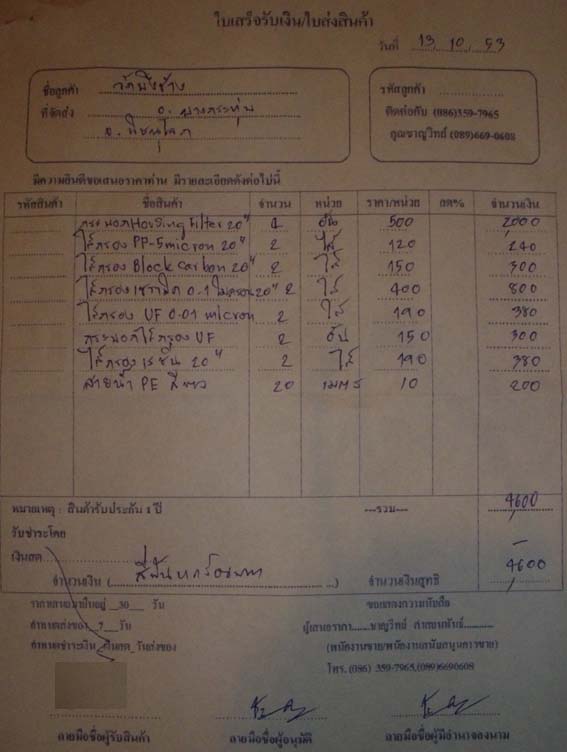 ใบเสร็จรับเงิน/ใบส่งสินค้า
วันที่ 13, 10, 53
ชื่อลูกค้า วัดบึงช้าง
ที่จัดส่ง อ. บางกระทุ่ม
จ. พิษณุโลก
รหัสลูกค้า
ติดต่อกับ (086)359-7965
คุณชาญวิทย์ (089)669-0608
มีความยินดีขอเสนอราคาท่าน มีรายละเอียดดังต่อไปนี้
รหัสสินค้า ชื่อสินค้า จำนวน หน่วย ราคา/หน่วย ลด% จำนวนเงิน
กระบอก Housing Filter 20" 4 อัน 500 2,000
ไส้กรอง PP-5micron 20" 2 ไส้ 120 240
ไส้กรอง Block carbon 20" 2 ไส้ 150 300
ไส้กรองเซรามิค 0.1 ไมครอน 20" 2 ไส้ 400 800
ไส้กรอง UF 0.01 micron 2 ไส้ 190 380
กระบอกไส้กรอง UF 2 อัน 150 300
ไส้กรองเรซิ่น 20" 2 ไส้ 190 380
สายน้ำ PE สีขาว 20 เมตร 10 200
หมายเหตุ : สินค้ารับประกัน 1 ปี ---รวม--- 4600
รับชำระโดย -
เงินสด 4600
จำนวนเงิน (สี่พันหกร้อยบาท) จำนวนเงินสุทธิ
ราคาเสนอมายืนอยู่ 30 วัน ขอแสดงความนับถือ
กำหนดส่งของ 7 วัน ผู้เสนอราคา ชาญวิทย์
กำหนดชำระเงิน เงินสด วันส่งของ (พนักงานขาย/พนักงานสนับสนุนการขาย)
โทร. (086) 359-7965,(089)6690608
ลายมือชื่อผู้รับสินค้า ลายมือชื่อผู้อนุมัติ ลายมือชื่อผู้มีอำนาจลงนาม